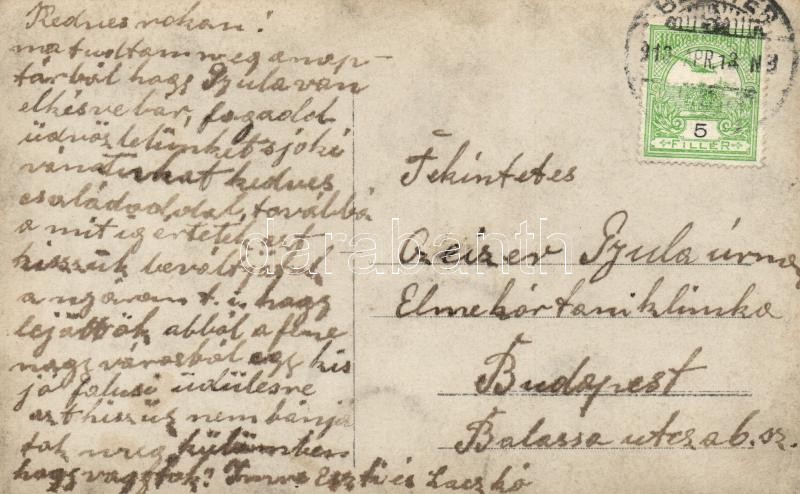 Kedves rokon!
ma tudtam meg a nap-
tárból hogy Gyula van
elkésve bár, fogadd
üdvözletünket s jóki
vánatunkat kedves
családoddal, továbbá
a mit igertetek azt
hisszük beváltjátok
a nyáron t. i. hogy
lejöttök abból a fene
nagy városból egy kis
jó falusi üdülésre
azt hiszük nem bánjá
tok meg külömben
hogy vagytok? Imre Eszti és Laczkó
913 APR. 13 N 3
MAGYAR KIR. POSTA
5
FILLÉR
Tekintetes
Czeizer Gyula úrnak
Elmekórtani klinika
Budapest
Balassa utcza 6. sz.
darabanth